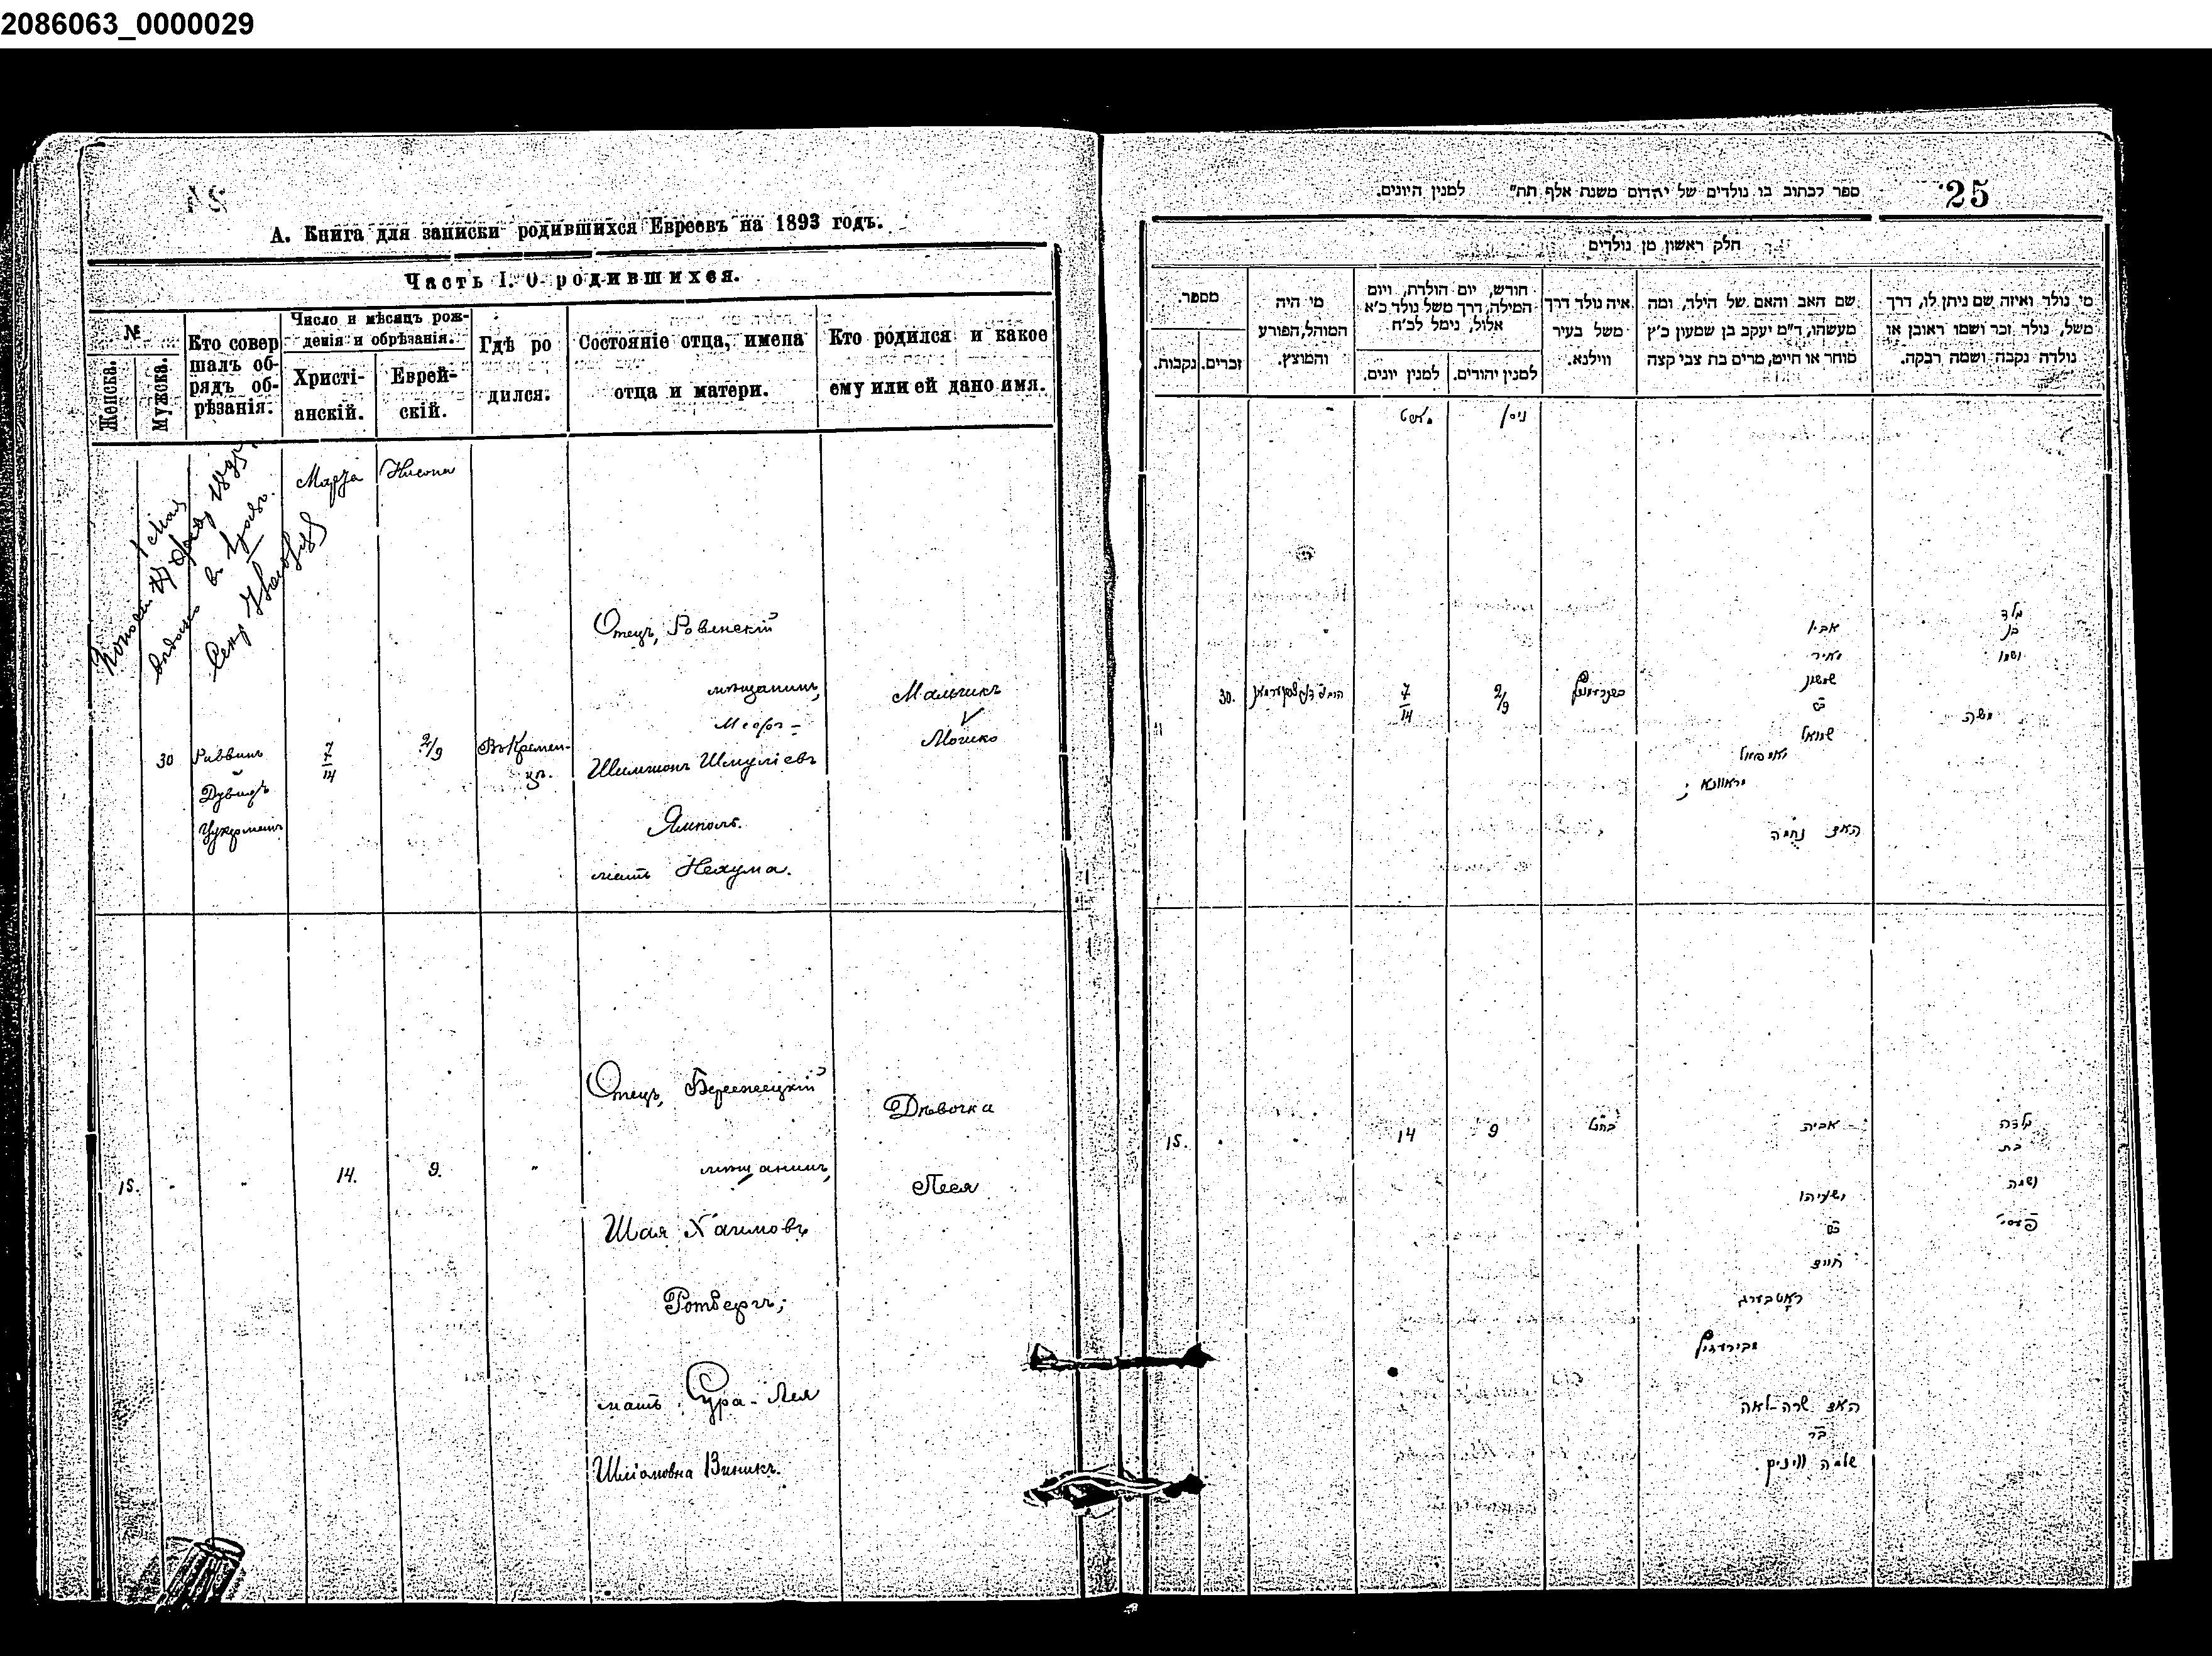 2086063_0000029
А. Книга для записки родившихся Евреевъ на 1893 годъ.
Часть I. О родившихся.
№
Женска.
Мужска.
Кто совершалъ обрядъ обрѣзанія.
Число и мѣсяцъ рожденія и обрѣзанія.
Христіанскій.
Еврейскій.
Гдѣ родился.
Состояніе отца, имена отца и матери.
Кто родился и какое ему или ей дано имя.
Марта
Нисона
30
Раввинъ
Дувидъ
Цукерманъ
7/14
2/9
Въ Кремен-
цѣ.
Отецъ, Ровенскій
мѣщанинъ,
Меор-
Шимшонъ Шмуліевъ
Ямполь.
мать Нехума.
Мальчикъ
Мошко
15.
14.
9.
"
Отецъ, Бережецкій
мѣщанинъ,
Шая Хаимовъ
Ротбергъ;
мать Сура-Лея
Шліомовна Виникъ.
Дѣвочка
Песя
25
ספר לכתוב בו נולדים של יהדום משנת אלף תת" למנין היונים.
חלק ראשון מן נולדים
מי נולד ואיזה שם ניתן לו, דרך
משל, נולד זכר ושמו ראובן או
נולדה נקבה ושמה רבקה.
שם האב והאם של הילד, ומה
מעשהו, ד"מ יעקב בן שמעון כ"ץ
סוחר או חייט, מרים בת צבי קצה
איה נולד דרך
משל בעיר
ווילנא.
חורש, יום הולדת, ויום
המילה, דרך משל נולד כ"א
אלול, נימל לכ"ח
למנין יהודים.
למנין יונים.
מי היה
המוהל, הפורע
והמוצץ.
מספר.
זכרים.
נקבות.
ניסן
ילד
בן
ושמו
משה
אביו
מאיר
שמשון
שמואל
האם נחמה
2/9
7/14
30.
ילדה
בת
ושמה
פעסי
אביה
ישעיהו
חיים
ראטבערג
האם שרה-לאה
שלמה וויניק
9
14
15.